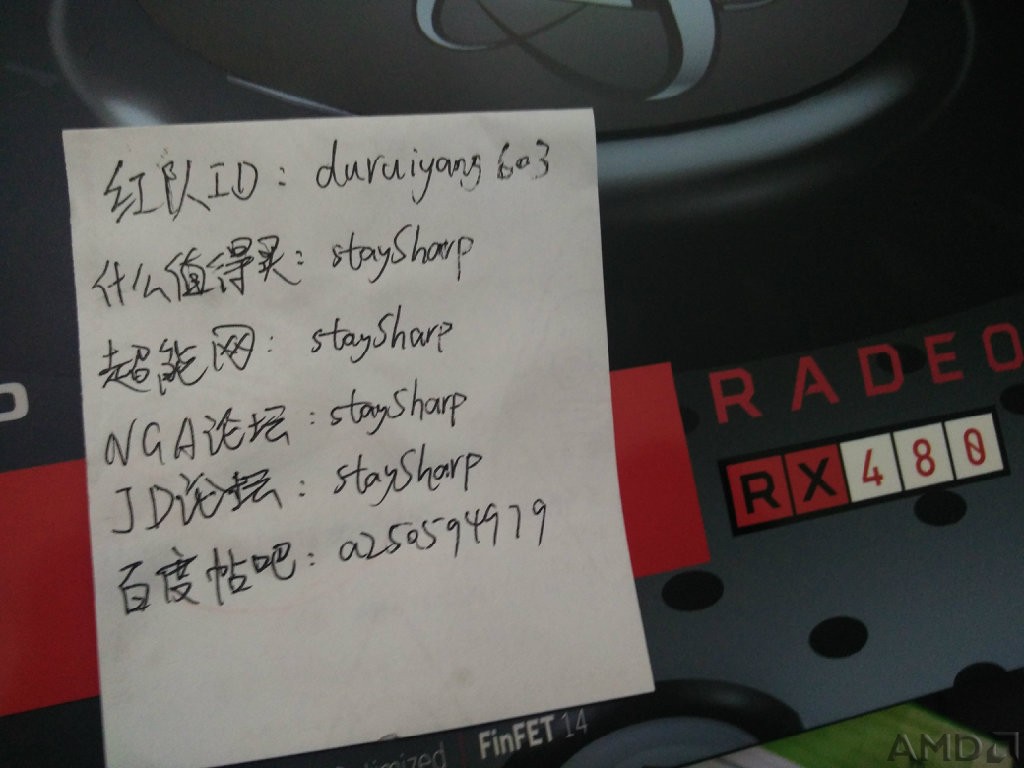 红队ID：duruiyang603
什么值得买：staySharp
超能网：staySharp
NGA论坛：staySharp
JD论坛：staySharp
百度帖吧：a250594979
RADEO
RX 480
FinFET 14
AMD